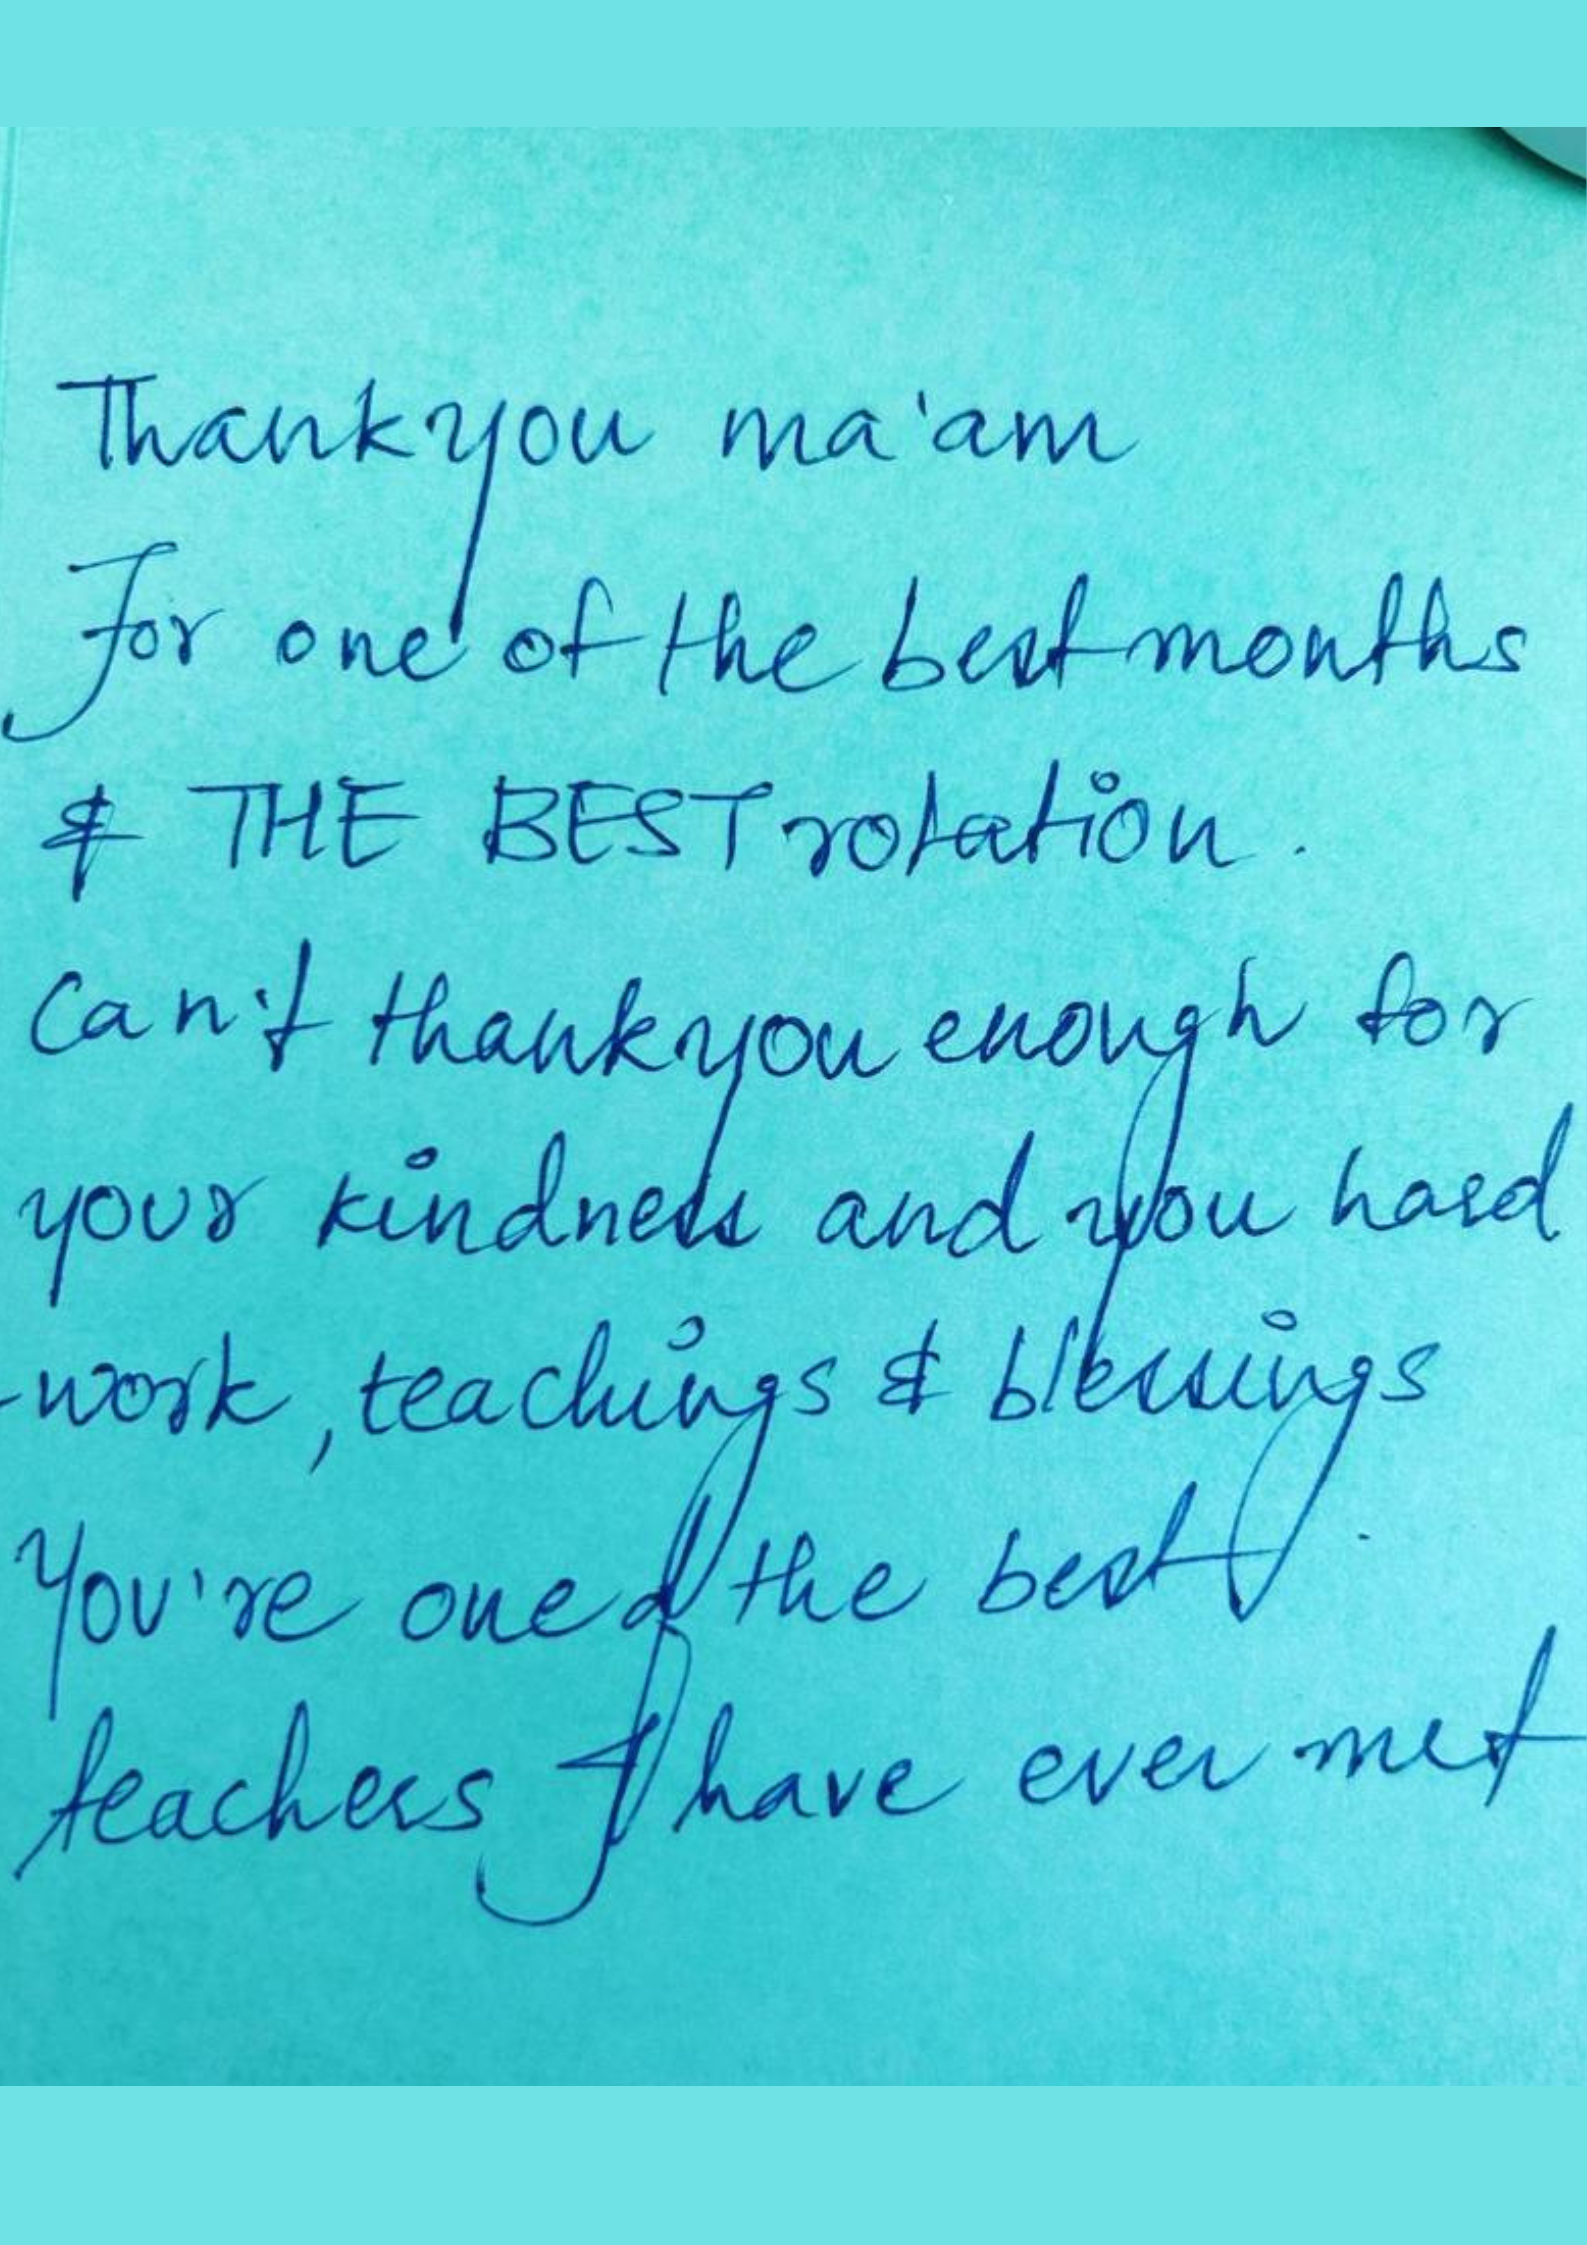 Thank you ma'am
For one of the best months
& THE BEST rotation.
Can't thank you enough for
your kindness and you hard
-work, teachings & blessings
You're one of the best
teachers I have ever met